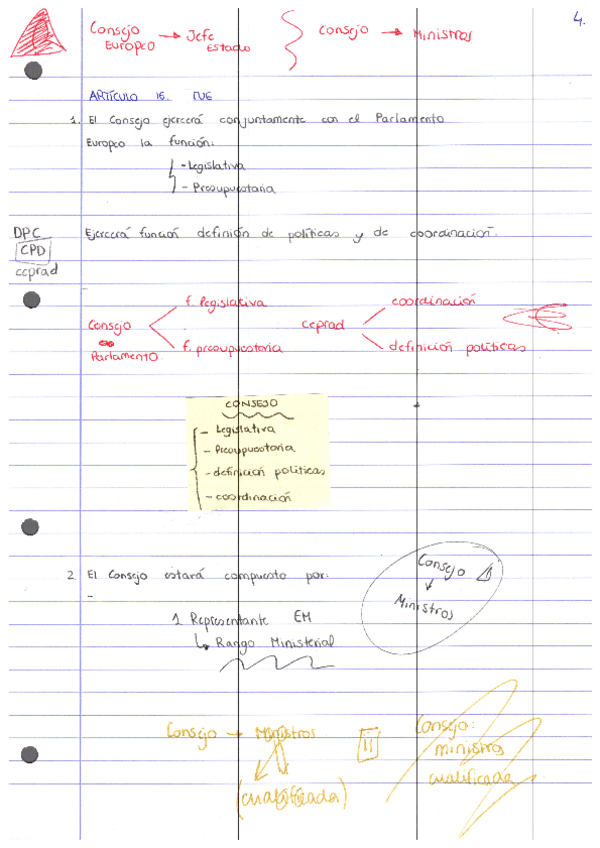 4.
Consejo Europeo → Jefe Estado
Consejo → Ministros
ARTÍCULO 16. TUE
1. El Consejo ejercerá conjuntamente con el Parlamento
Europeo la función:
- Legislativa
- Presupuestaria
DPC
CPD
Ejercerá función definión de políticas y de coordinación.
Consejo
Parlamento
f. legislativa
f. presupuestaria
coordinación
definición políticas
CONSEJO
- Legislativa
- Presupuestaria
- definición políticas
- coordinación
2. El Consejo estará compuesto por:
-
1 Representante EM
↳ Rango Ministerial
Consejo
↓
Ministros
Consejo → Ministros
(cualificada)
Consejo:
ministros
cualificada